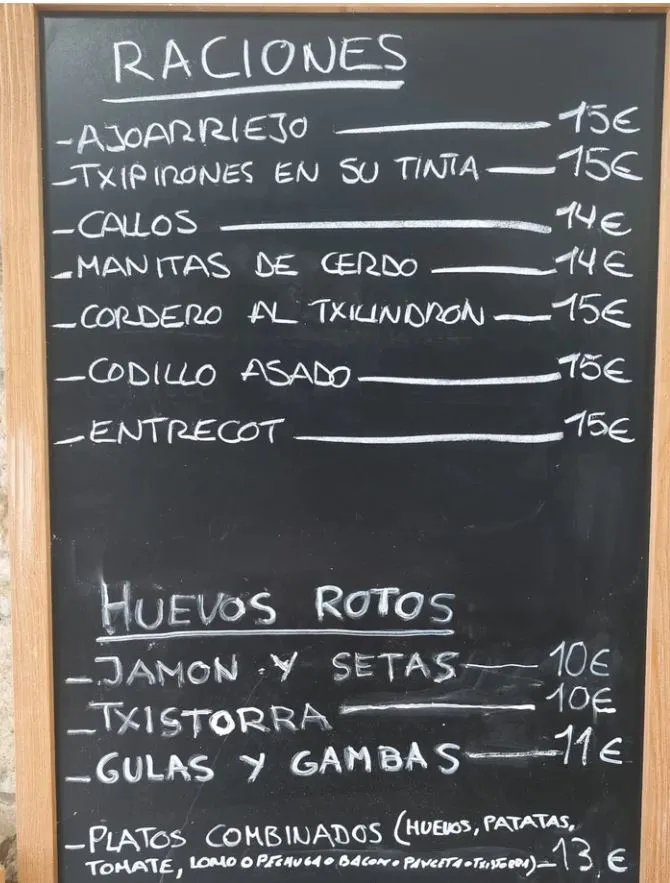 RACIONES
-AJOARRIEJO 15€
-TXIPIRONES EN SU TINTA 15€
-CALLOS 14€
-MANITAS DE CERDO 14€
-CORDERO AL TXILINDRON 15€
-CODILLO ASADO 15€
-ENTRECOT 15€
HUEVOS ROTOS
-JAMON Y SETAS 10€
-TXISTORRA 10€
-GULAS Y GAMBAS 11€
-PLATOS COMBINADOS (HUEVOS, PATATAS,
TOMATE, LOMO O PECHUGA O BACON O PANCETA O TXISTORRA) 13€